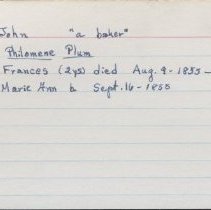 John "a baker"
Philomene Plum
Frances (2ys) died Aug. 9 - 1855 -
Marie Ann b Sept. 16 - 1855